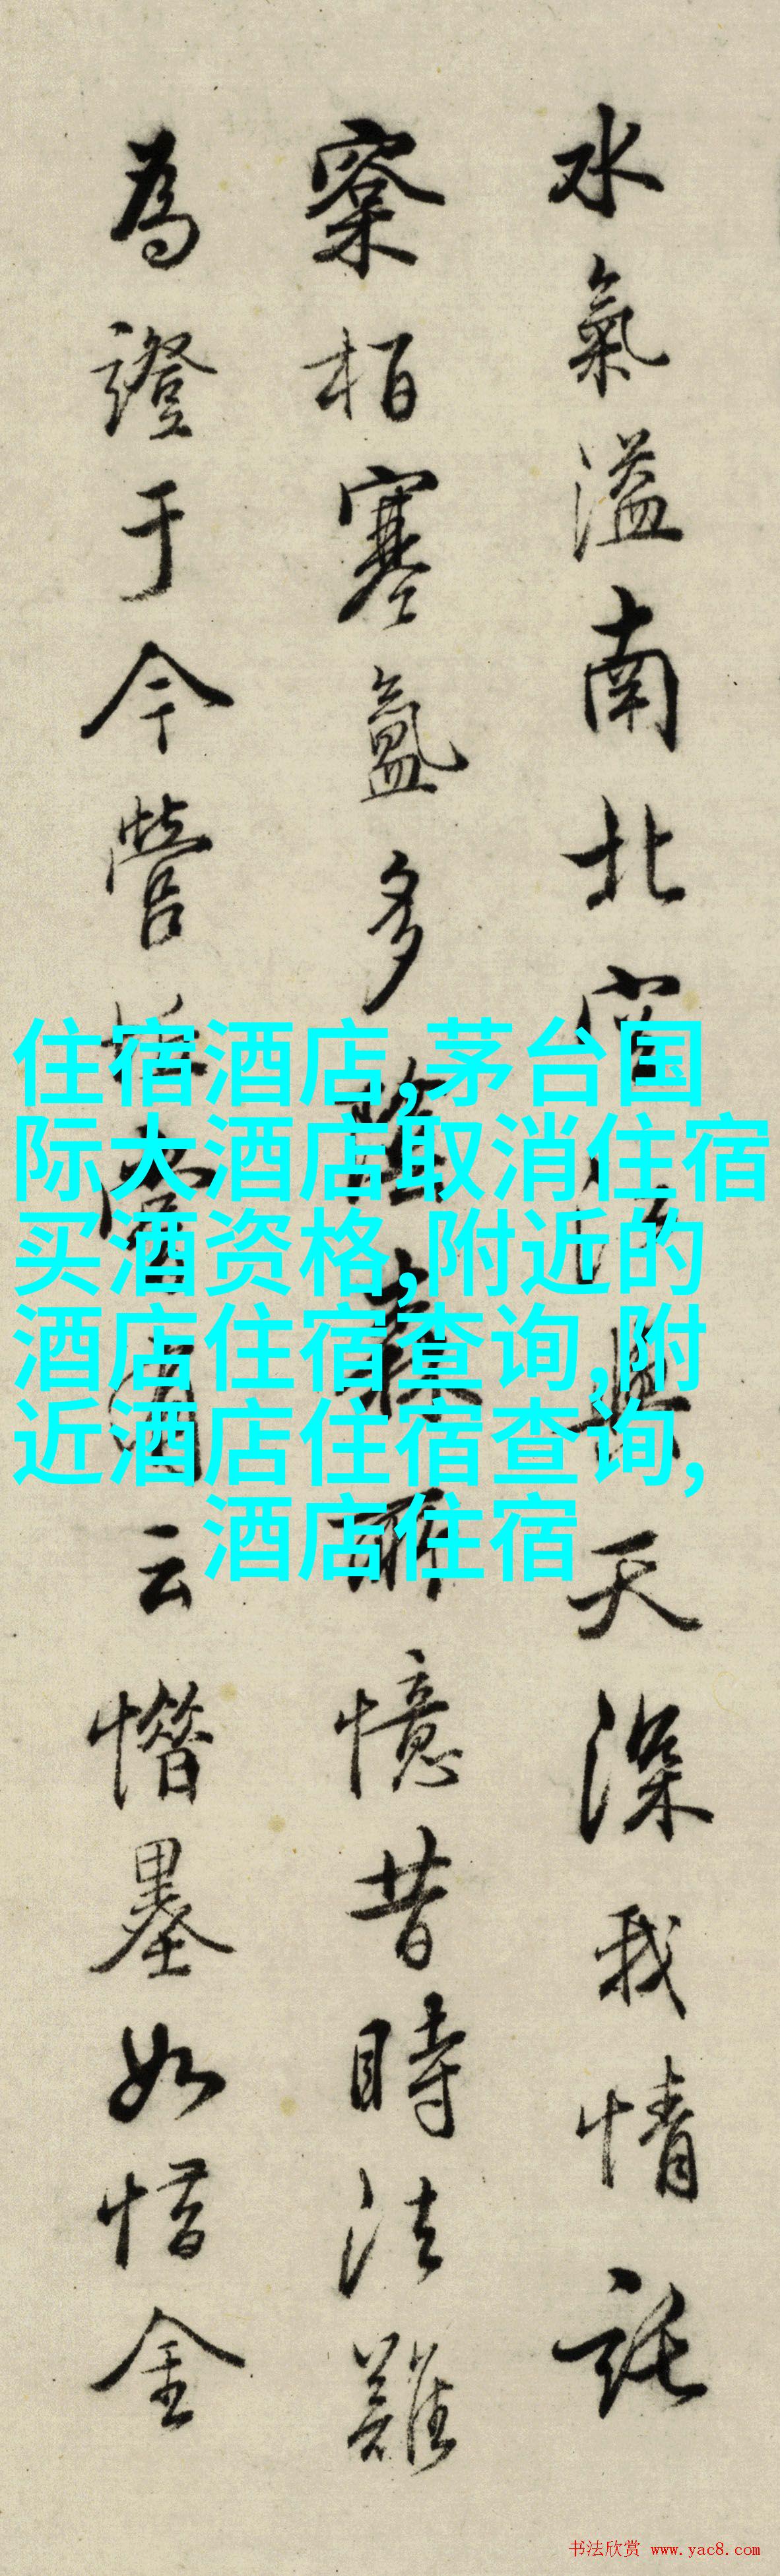 水氣溢南北
天深我情託
寀栢塞氲多
憶昔時法難
為證于今營
云惜墨如惜金
住宿酒店,茅台国
际大酒店取消住宿
买酒资格,附近的
酒店住宿查询,附
近酒店住宿查询,
酒店住宿
书法欣赏 www.yac8.com